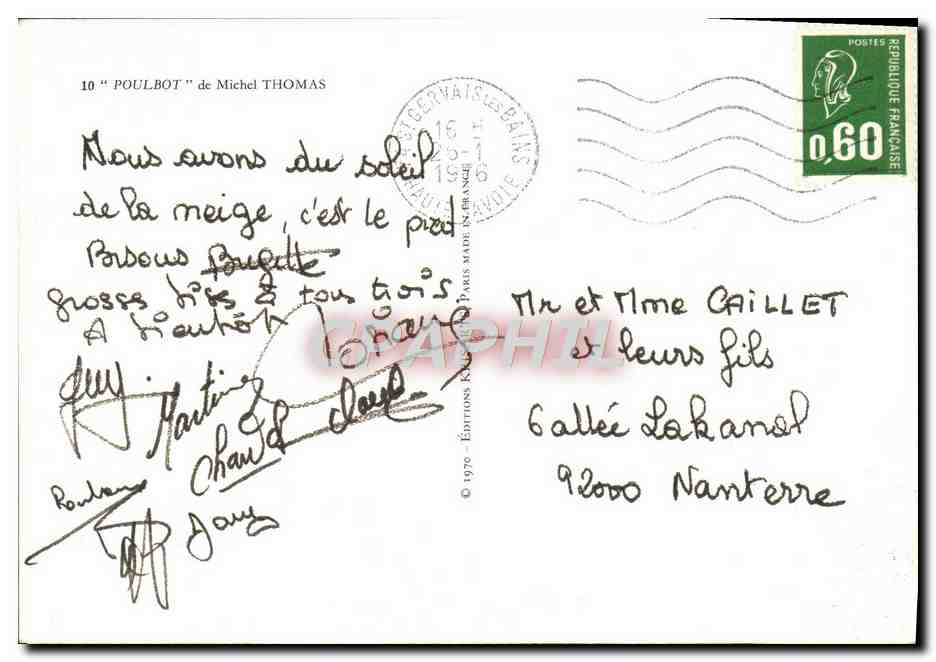 10 " POULBOT " de Michel THOMAS
ST GERVAIS LES BAINS
16 H
26-1
1976
HAUTE SAVOIE
POSTES
REPUBLIQUE FRANÇAISE
0,60
Nous avons du soleil
de la neige, c'est le pied
Bisous Brigitte
grosses bises à tous trois
A bientôt
Guy
Martine
Dany
Mr et Mme CAILLET
et leurs fils
6 allée Lakanal
92000 Nanterre
© 1970 - ÉDITIONS PARIS MADE IN FRANCE
CPAPHIL